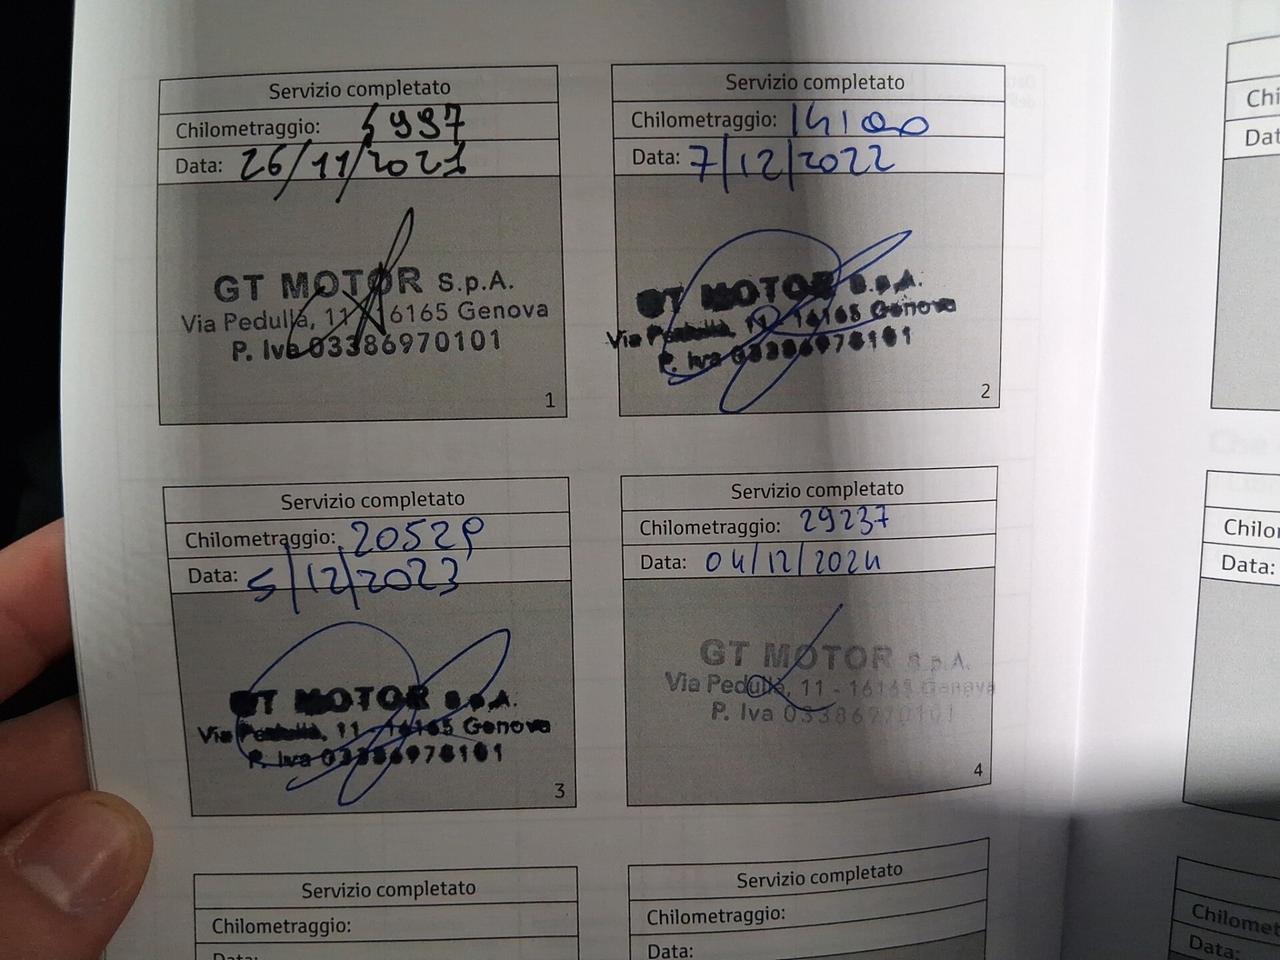 Servizio completato
Chilometraggio: 5997
Data: 26/11/2021
GT MOTOR S.p.A.
Via Pedullà, 11 - 16165 Genova
P. Iva 03386970101
1
Servizio completato
Chilometraggio: 14100
Data: 7/12/2022
GT MOTOR S.p.A.
Via Pedullà, 11 - 16165 Genova
P. Iva 03386970101
2
Servizio completato
Chilometraggio: 20529
Data: 5/12/2023
GT MOTOR S.p.A.
Via Pedullà, 11 - 16165 Genova
P. Iva 03386970101
3
Servizio completato
Chilometraggio: 29237
Data: 04/12/2024
GT MOTOR S.p.A.
Via Pedullà, 11 - 16165 Genova
P. Iva 03386970101
4
Servizio completato
Chilometraggio:
Data:
Servizio completato
Chilometraggio:
Data:
Chi
Dat
Chilo
Data:
Chilomet
Data: